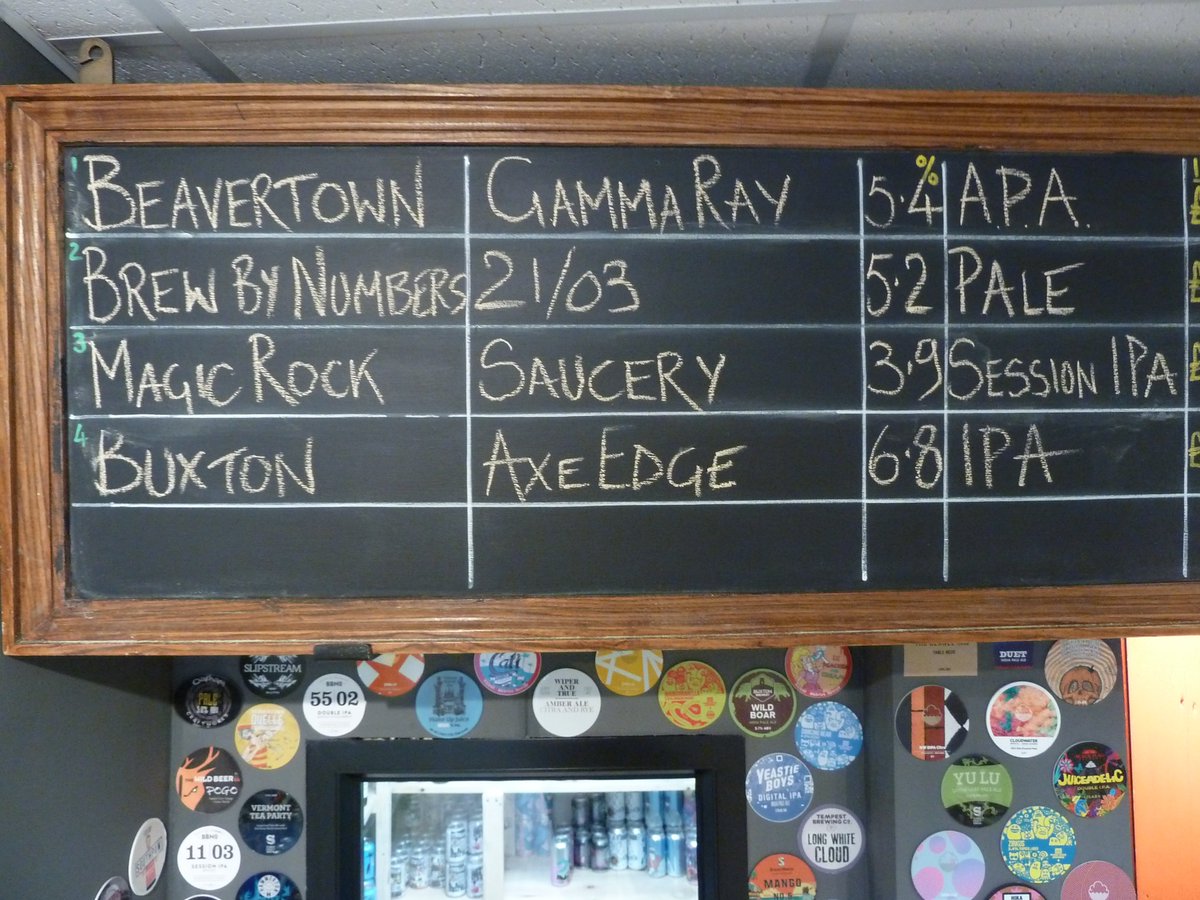 %
1 BEAVERTOWN GAMMA RAY 5.4 A.P.A. £
2 BREW BY NUMBERS 21/03 5.2 PALE £
3 MAGIC ROCK SAUCERY 3.9 SESSION IPA £
4 BUXTON AXE EDGE 6.8 IPA £
SLIPSTREAM
PALE
BBNO
55 02
DOUBLE IPA
Cali
WIPER
AND
TRUE
AMBER ALE
CITRA AND RYE
BUXTON
WILD
BOAR
TABLE BEER
DUET
CLOUDWATER
THE WILD BEER CO
POGO
VERMONT
TEA PARTY
YEASTIE
BOYS
DIGITAL IPA
YU LU
JUICEADELIC
DOUBLE IPA
BBNO
11 03
SESSION IPA
TEMPEST
BREWING CO.
LONG WHITE
CLOUD
MANGO